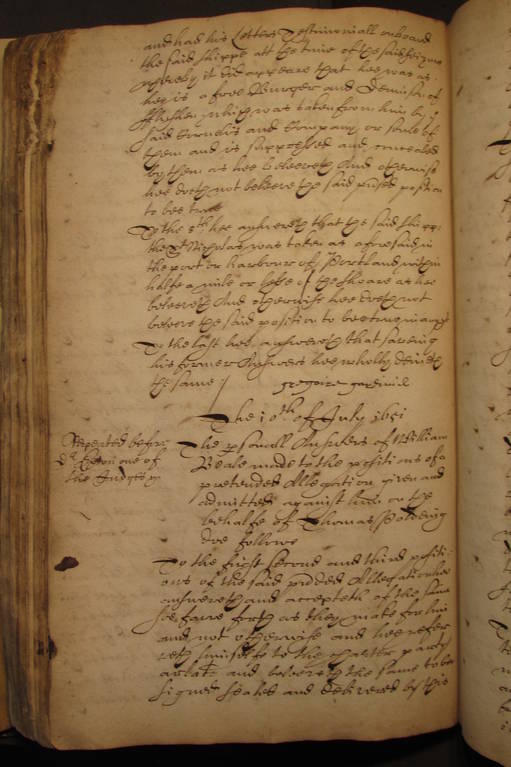 and had his Letters Testimoniall onboard
the said shippe att the time of the said seizure
whereby it did appeare that hee was as
hee is a free Burger and Denison of
which was taken from him by the
said and Company or some of
them and is suppressed and concealed
by them as hee beleeveth And otherwise
hee doth not beleeve the said position
to bee true
To the 8th hee answereth that the said shipp
the St Nicholas was taken as aforesaid in
the port or harbour of Portland within
halfe a mile or lesse of the shoare as hee
beleeveth And otherwise hee doth not
beleeve the said position to bee true in any pt
To the last hee answereth that saveing
his former Answers hee wholly denieth
the same /
gregoire
The 10th of July 1651
Repeated before
Dr one of
the Judges
The psonall Answers of William
Beale made to the positions of a
pretended Allegation given and
admitted against him on the
behalfe of Thomas
doe followe
To the first second and third positi:
ons of the said prtded Allegation hee
answereth and accepteth of the same
soe farre forth as they make for him
and not otherwise and hee refer
reth himselfe to the charter party
arlate and beleeveth the same to bee
signed sealed and delivered by this